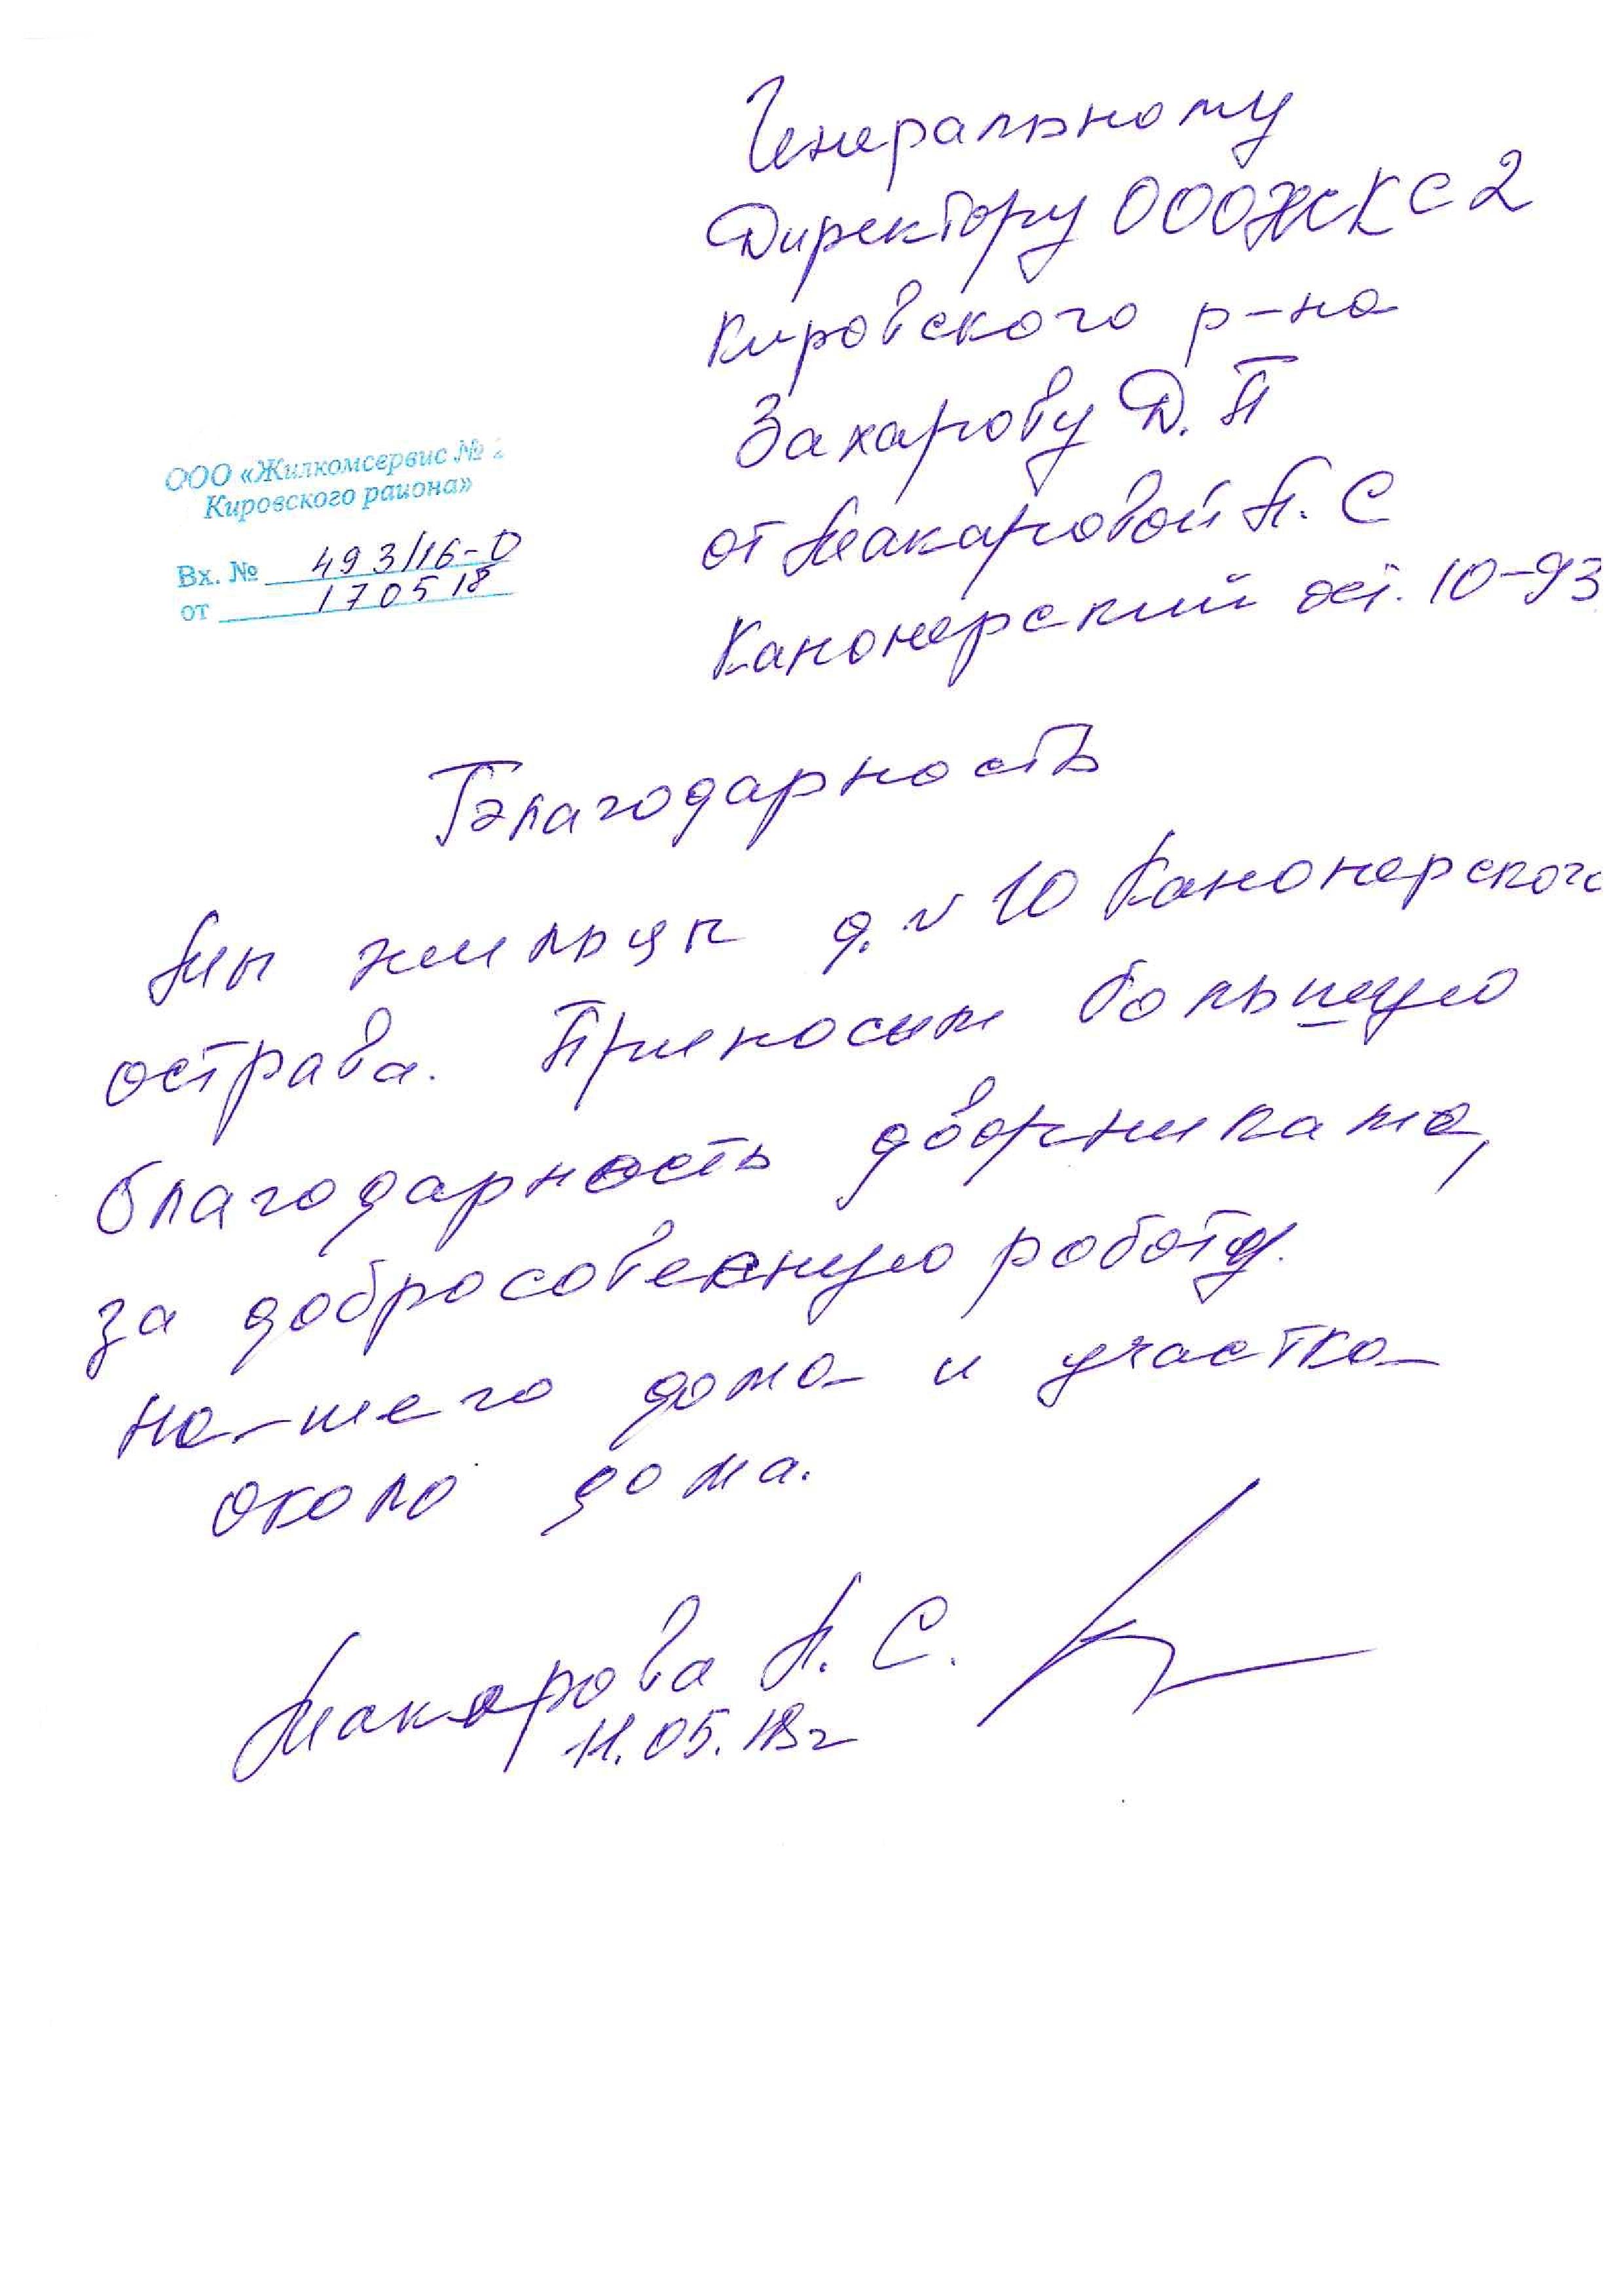 Генеральному
Директору ООО ЖКС 2
Кировского р-на
Захарову Д. П
от Макаровой Л. С
Канонерский ост. 10-93
ООО «Жилкомсервис № 2
Кировского района»
Вх. № 493/16-0
от 170518
Благодарность
Мы жильцы д. N 10 Канонерского
острава. Приносим большую
благодарность дворникам,
за добросовесную роботу.
нашего дома и участка
около дома.
Макарова Л. С.
11.05.18г